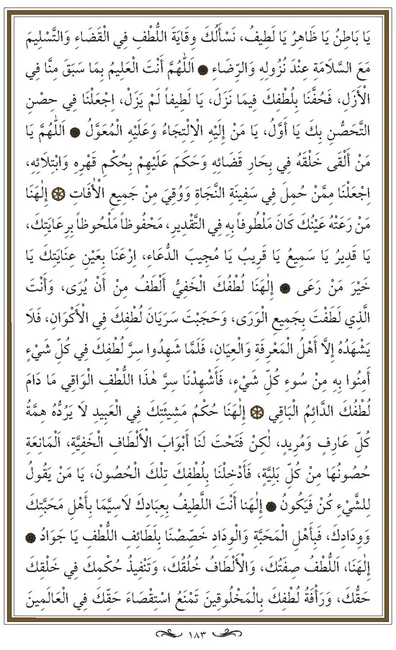 يَا بَاطِنُ يَا ظَاهِرُ يَا لَطِيفُ، نَسْأَلُكَ وِقَايَةَ اللُّطْفِ فِي الْقَضَاءِ وَالتَّسْلِيمَ
مَعَ السَّلَامَةِ عِنْدَ نُزُولِهِ وَالرِّضَاءِ ❁ اَللّٰهُمَّ أَنْتَ الْعَلِيمُ بِمَا سَبَقَ مِنَّا فِي
الْأَزَلِ، فَحُفَّنَا بِلُطْفِكَ فِيمَا نَزَلَ، يَا لَطِيفاً لَمْ يَزَلْ، اجْعَلْنَا فِي حِصْنِ
التَّحَصُّنِ بِكَ يَا أَوَّلُ، يَا مَنْ إِلَيْهِ الْاِلْتِجَاءُ وَعَلَيْهِ الْمُعَوَّلُ ❁ اَللّٰهُمَّ يَا
مَنْ أَلْقَى خَلْقَهُ فِي بِحَارِ قَضَائِهِ وَحَكَمَ عَلَيْهِمْ بِحُكْمِ قَهْرِهِ وَابْتِلَائِهِ،
اِجْعَلْنَا مِمَّنْ حُمِلَ فِي سَفِينَةِ النَّجَاةِ وَوُقِيَ مِنْ جَمِيعِ الْآفَاتِ ❁ إِلٰهَنَا
مَنْ رَعَتْهُ عَيْنُكَ كَانَ مَلْطُوفاً بِهِ فِي التَّقْدِيرِ، مَحْفُوظاً مَلْحُوظاً بِرِعَايَتِكَ،
يَا قَدِيرُ يَا سَمِيعُ يَا قَرِيبُ يَا مُجِيبَ الدُّعَاءِ، اِرْعَنَا بِعَيْنِ عِنَايَتِكَ يَا
خَيْرَ مَنْ رَعَى ❁ إِلٰهَنَا لُطْفُكَ الْخَفِيُّ أَلْطَفُ مِنْ أَنْ يُرَى، وَأَنْتَ
الَّذِي لَطَفْتَ بِجَمِيعِ الْوَرَى، وَحَجَبْتَ سَرَيَانَ لُطْفِكَ فِي الْأَكْوَانِ، فَلَا
يَشْهَدُهُ إِلَّا أَهْلُ الْمَعْرِفَةِ وَالْعِيَانِ، فَلَمَّا شَهِدُوا سِرَّ لُطْفِكَ فِي كُلِّ شَيْءٍ
أَمِنُوا بِهِ مِنْ سُوءِ كُلِّ شَيْءٍ، فَأَشْهِدْنَا سِرَّ هٰذَا اللُّطْفِ الْوَاقِي مَا دَامَ
لُطْفُكَ الدَّائِمُ الْبَاقِي ❁ إِلٰهَنَا حُكْمُ مَشِيئَتِكَ فِي الْعَبِيدِ لَا يَرُدُّهُ هِمَّةُ
كُلِّ عَارِفٍ وَمُرِيدٍ، لٰكِنْ فَتَحْتَ لَنَا أَبْوَابَ الْأَلْطَافِ الْخَفِيَّةِ، الْمَانِعَةِ
حُصُونُهَا مِنْ كُلِّ بَلِيَّةٍ، فَأَدْخِلْنَا بِلُطْفِكَ تِلْكَ الْحُصُونَ، يَا مَنْ يَقُولُ
لِلشَّيْءِ كُنْ فَيَكُونُ ❁ إِلٰهَنَا أَنْتَ اللَّطِيفُ بِعِبَادِكَ لَاسِيَّمَا بِأَهْلِ مَحَبَّتِكَ
وَوِدَادِكَ، فَبِأَهْلِ الْمَحَبَّةِ وَالْوِدَادِ خَصِّصْنَا بِلَطَائِفِ اللُّطْفِ يَا جَوَادُ ❁
إِلٰهَنَا، اَللُّطْفُ صِفَتُكَ، وَالْأَلْطَافُ خُلُقُكَ، وَتَنْفِيذُ حُكْمِكَ فِي خَلْقِكَ
حَقُّكَ، وَرَأْفَةُ لُطْفِكَ بِالْمَخْلُوقِينَ تَمْنَعُ اسْتِقْصَاءَ حَقِّكَ فِي الْعَالَمِينَ
١٨٣